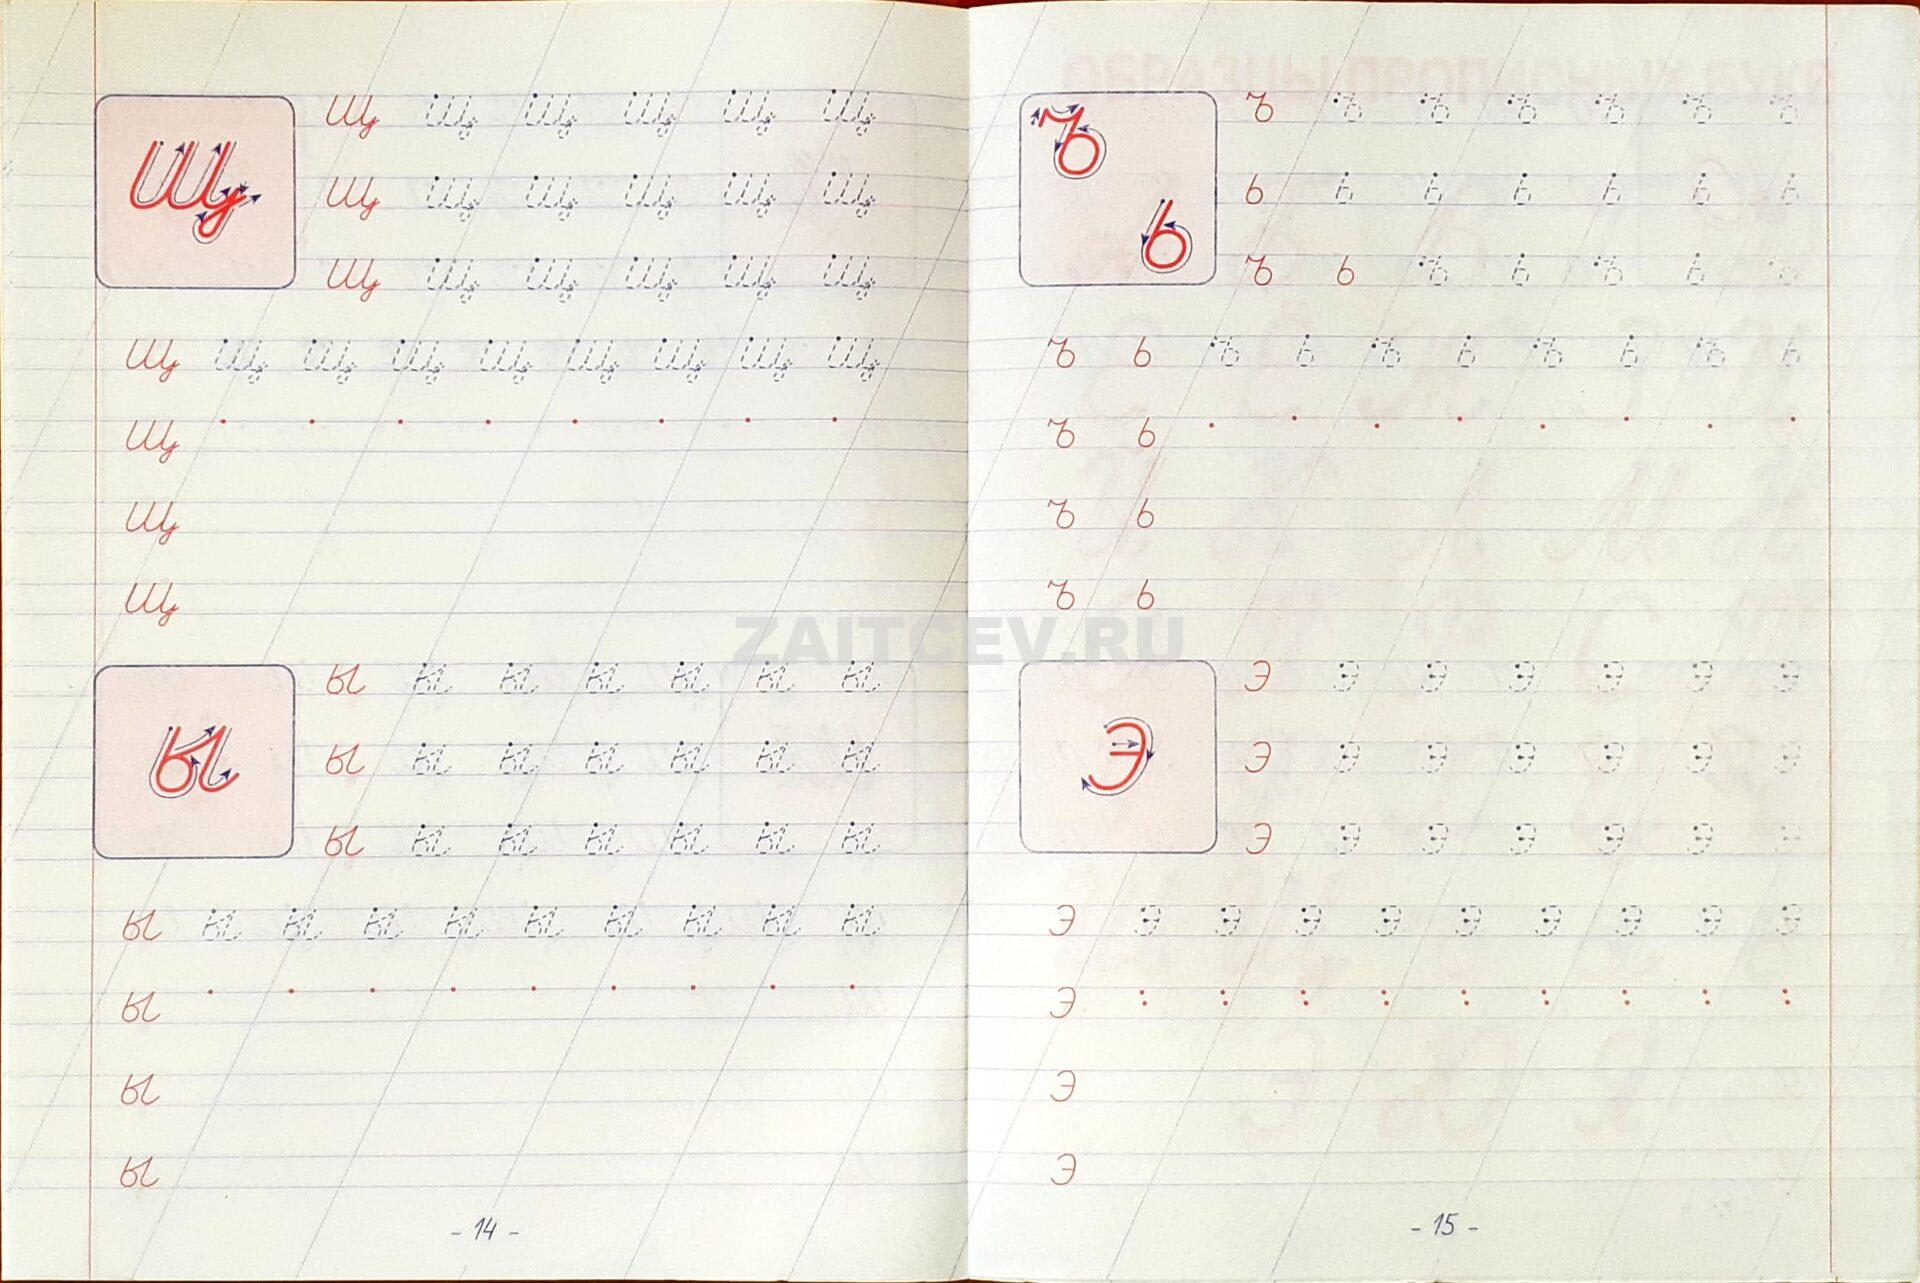 щ
щ щ щ щ щ щ
щ щ щ щ щ щ
щ щ щ щ щ щ
щ щ щ щ щ щ щ щ щ
щ
щ
щ
ы
ы ы ы ы ы ы ы
ы ы ы ы ы ы ы
ы ы ы ы ы ы ы
ы ы ы ы ы ы ы ы ы ы
ы
ы
ы
- 14 -
ъ
ь
ъ ъ ъ ъ ъ ъ ъ
ь ь ь ь ь ь ь
ъ ь ъ ь ъ ь ъ
ъ ь ъ ь ъ ь ъ ь ъ ь
ъ ь
ъ ь
ъ ь
э
э э э э э э э
э э э э э э э
э э э э э э э
э э э э э э э э э э
э
э
э
- 15 -
ZAITCEV.RU